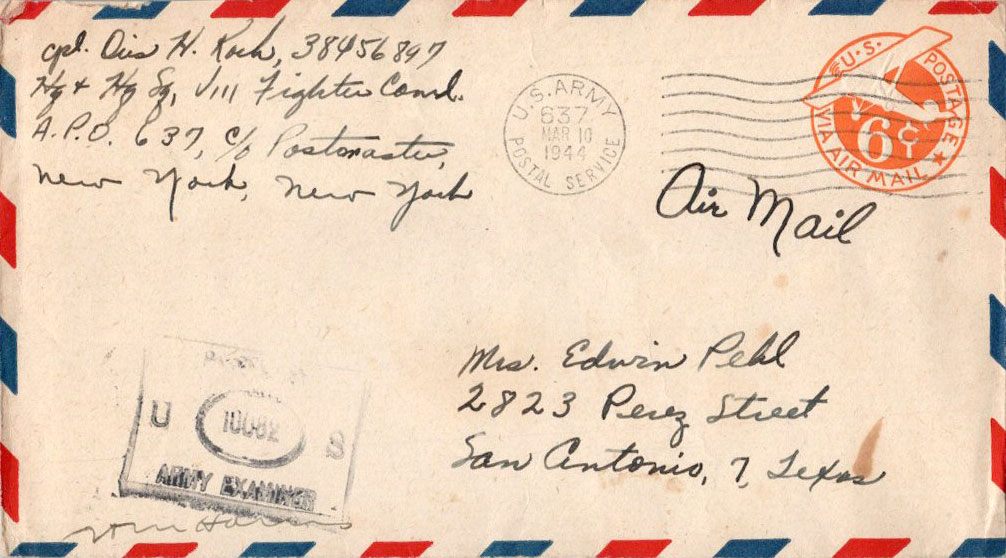 cpl. Otis H. Roch, 38456897
Hq + Hq Sq, VIII Fighter Comd.
A.P.O. 637, c/o Postmaster,
New York, New York
U.S. ARMY
637
MAR 10
1944
POSTAL SERVICE
U.S. POSTAGE
6¢
VIA AIR MAIL
Air Mail
Mrs. Edwin Pehl
2823 Perez Street
San Antonio, 7, Texas
U 10082 S
ARMY EXAMINER